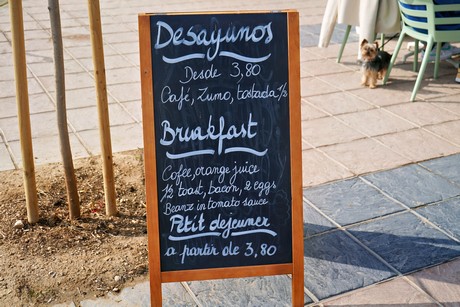 Desayunos
Desde 3,80
Café, Zumo, tostada ½
Breakfast
Cofee, orange juice
½ toast, bacon, 2 eggs
Beanz in tomato sauce
Petit dejeuner
a partir de 3,80